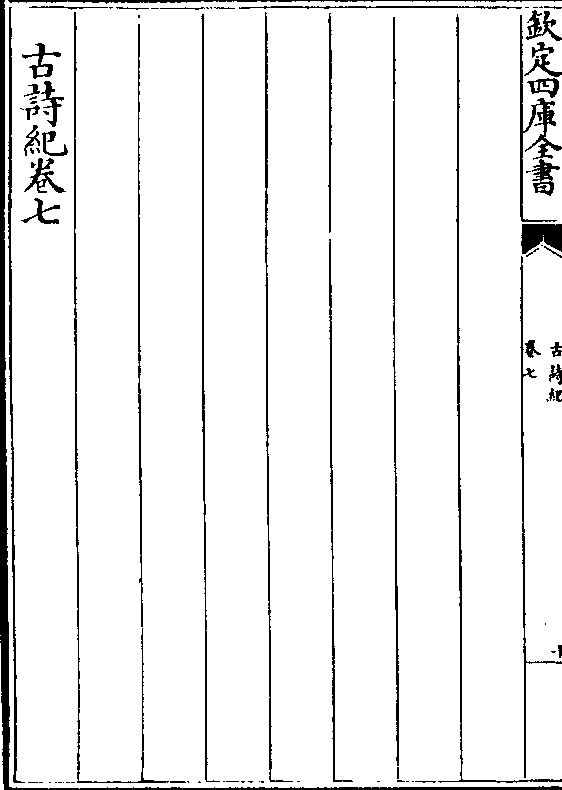 欽定四庫全書
古詩紀
卷七
古詩紀卷七